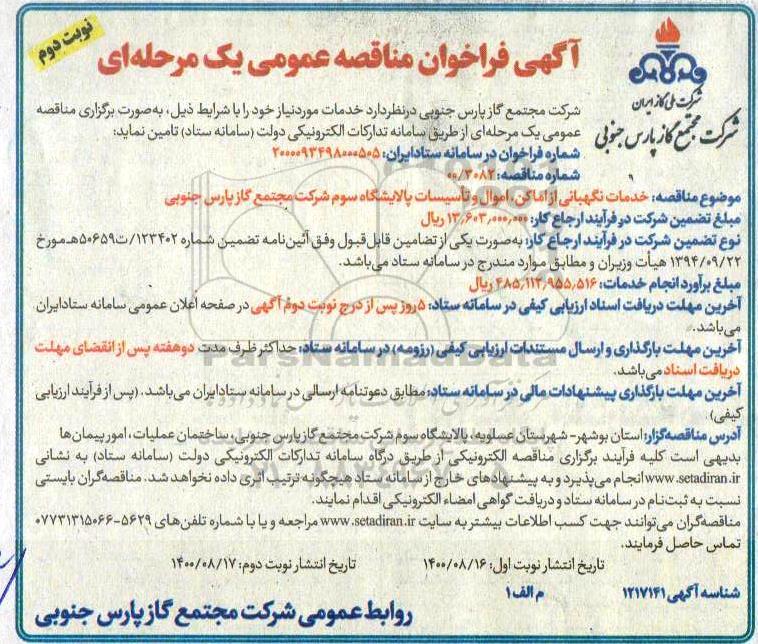 نوبت دوم
آگهی فراخوان مناقصه عمومی یک مرحله‌ای
شرکت ملی گاز ایران
شرکت مجتمع گاز پارس جنوبی
شرکت مجتمع گاز پارس جنوبی درنظر دارد خدمات موردنیاز خود را با شرایط ذیل، به‌صورت برگزاری مناقصه
عمومی یک مرحله‌ای از طریق سامانه تدارکات الکترونیکی دولت (سامانه ستاد) تامین نماید:
شماره فراخوان در سامانه ستادایران: ۲۰۰۰۰۹۳۴۹۸۰۰۰۵۰۵
شماره مناقصه: ۰۰/۳۰۸۲
موضوع مناقصه: خدمات نگهبانی از اماکن، اموال و تأسیسات پالایشگاه سوم شرکت مجتمع گاز پارس جنوبی
مبلغ تضمین شرکت در فرآیند ارجاع کار: ۱۳,۶۰۳,۰۰۰,۰۰۰ ریال
نوع تضمین شرکت در فرآیند ارجاع کار: به‌صورت یکی از تضامین قابل قبول وفق آئین‌نامه تضمین شماره ۱۲۳۴۰۲/ت۵۰۶۵۹هـ مورخ
۱۳۹۴/۰۹/۲۲ هیأت وزیران و مطابق موارد مندرج در سامانه ستاد می‌باشد.
مبلغ برآورد انجام خدمات: ۴۸۵,۱۱۲,۹۵۵,۵۱۶ ریال
آخرین مهلت دریافت اسناد ارزیابی کیفی در سامانه ستاد: ۵ روز پس از درج نوبت دوم آگهی در صفحه اعلان عمومی سامانه ستادایران
می‌باشد.
آخرین مهلت بارگذاری و ارسال مستندات ارزیابی کیفی (رزومه) در سامانه ستاد: حداکثر ظرف مدت دوهفته پس از انقضای مهلت
دریافت اسناد می‌باشد.
آخرین مهلت بارگذاری پیشنهادات مالی در سامانه ستاد: مطابق دعوتنامه ارسالی در سامانه ستادایران می‌باشد. (پس از فرآیند ارزیابی
کیفی)
آدرس مناقصه‌گزار: استان بوشهر- شهرستان عسلویه، پالایشگاه سوم شرکت مجتمع گاز پارس جنوبی، ساختمان عملیات، امور پیمان‌ها
بدیهی است کلیه فرآیند برگزاری مناقصه الکترونیکی از طریق درگاه سامانه تدارکات الکترونیکی دولت (سامانه ستاد) به نشانی
www.setadiran.ir انجام می‌پذیرد و به پیشنهادهای خارج از سامانه ستاد هیچگونه ترتیب اثری داده نخواهد شد. مناقصه‌گران بایستی
نسبت به ثبت‌نام در سامانه ستاد و دریافت گواهی امضاء الکترونیکی اقدام نمایند.
مناقصه‌گران می‌توانند جهت کسب اطلاعات بیشتر به سایت www.setadiran.ir مراجعه و یا با شماره تلفن‌های ۵۶۲۹-۰۷۷۳۱۳۱۵۰۶۶
تماس حاصل فرمایند.
تاریخ انتشار نوبت اول: ۱۴۰۰/۰۸/۱۶ تاریخ انتشار نوبت دوم: ۱۴۰۰/۰۸/۱۷
شناسه آگهی ۱۲۱۷۱۴۱ م الف ۱
روابط عمومی شرکت مجتمع گاز پارس جنوبی
ParsNamadData